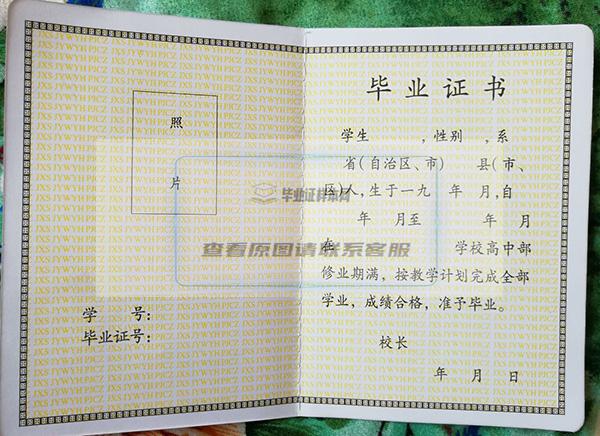 照
片
学 号:
毕业证号:
毕业证书
学生 ,性别 ,系
省(自治区、市) 县(市、
区)人,生于一九 年 月,自
年 月至 年 月
在 学校高中部
修业期满,按教学计划完成全部
学业,成绩合格,准予毕业。
校长
年 月 日
毕业证样本网
查看原图请联系客服